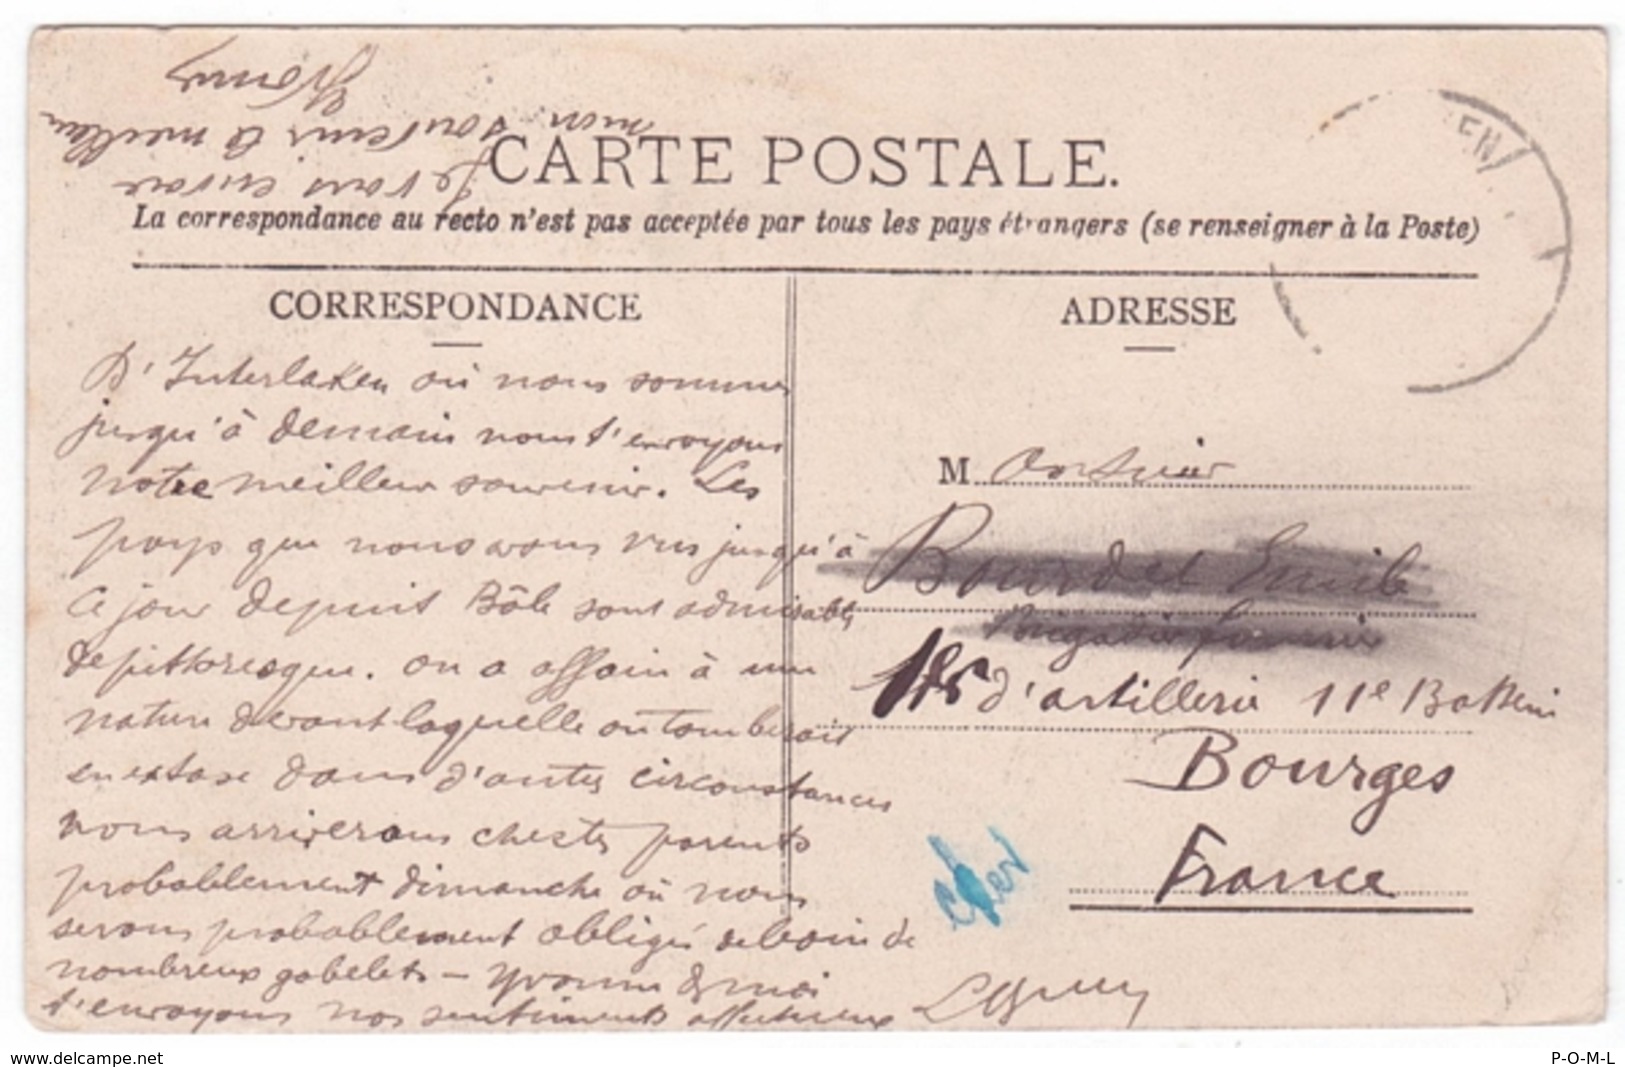 Je vous envoie
mon souvenir le meilleur
Yvonne
CARTE POSTALE.
La correspondance au recto n'est pas acceptée par tous les pays étrangers (se renseigner à la Poste)
CORRESPONDANCE
D'Interlaken où nous sommes
jusqu'à demain nous t'envoyons
notre meilleur souvenir. Les
pays que nous avons vus jusqu'à
ce jour depuis Bâle sont admirables
de pittoresque. on a affaire à une
nature devant laquelle on tomberait
en extase dans d'autres circonstances
nous arriverons chez tes parents
probablement dimanche où nous
serons probablement obligés de boire de
nombreux gobelets – Yvonne & moi
t'envoyons nos sentiments affectueux
ADRESSE
M onsieur
Bourdet Emile
Brigadier fourrier
d'artillerie 11e Batterie
Bourges
France
Cher
www.delcampe.net
P-O-M-L